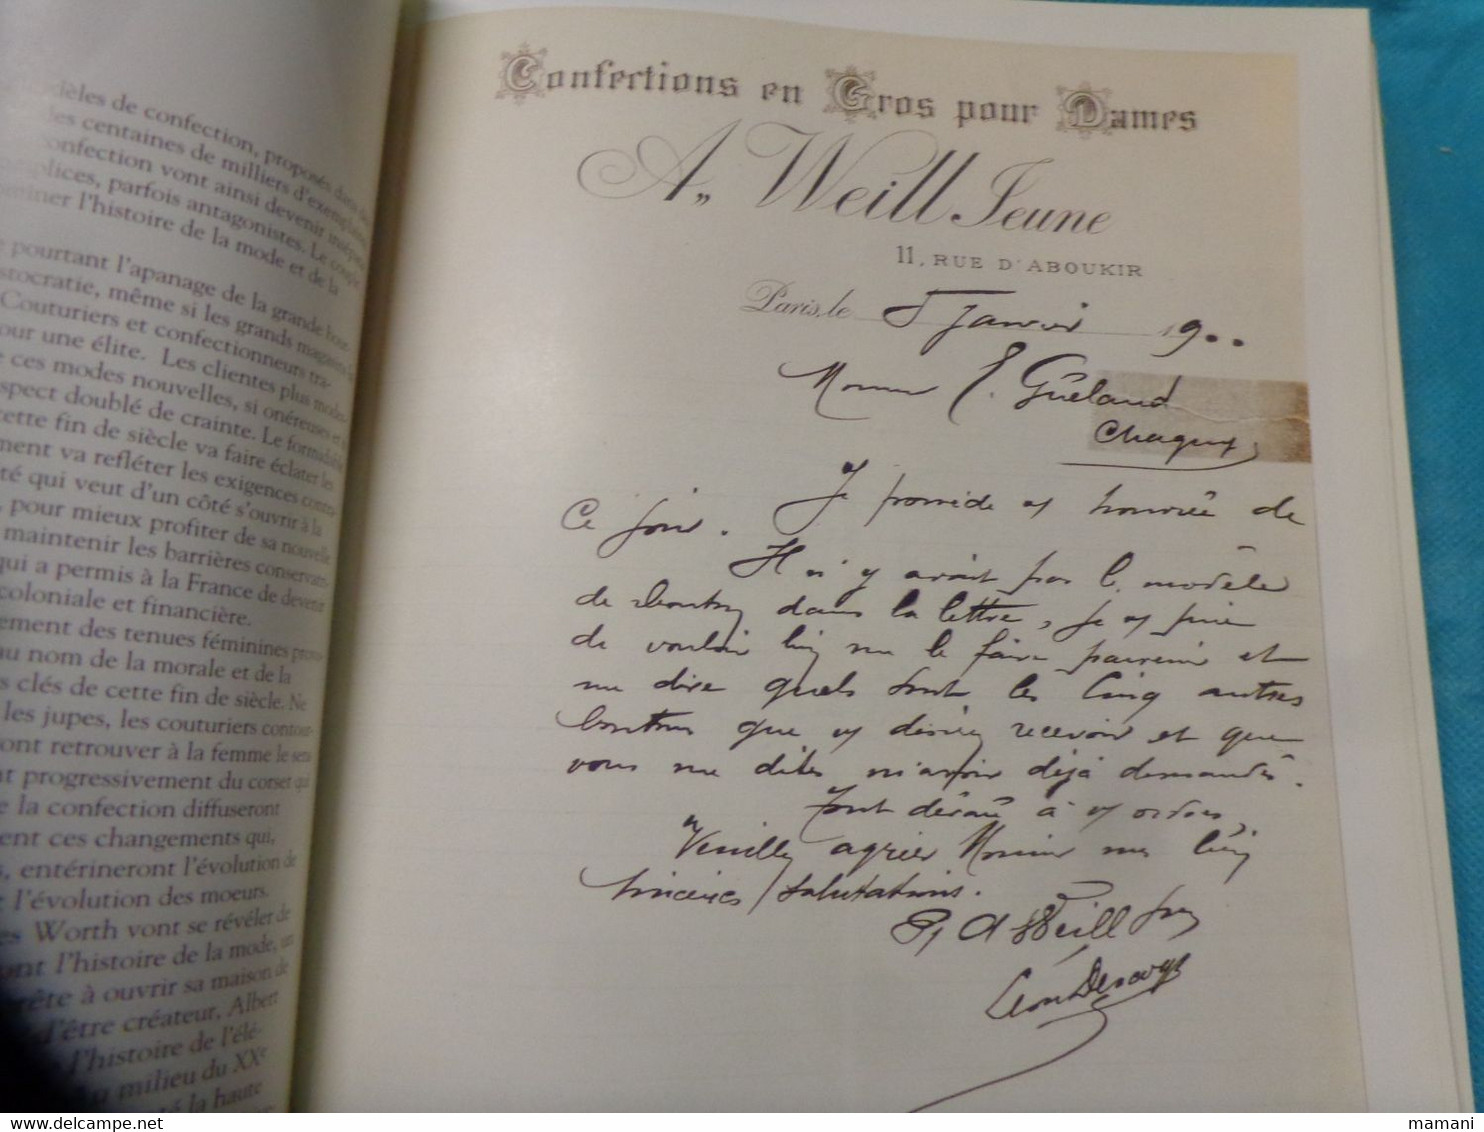 èles de confection, proposés dans
les centaines de milliers d'exemplaires
onfection vont ainsi devenir
plices, parfois antagonistes. Le couple
miner l'histoire de la mode et de la
e pourtant l'apanage de la grande bour-
stocratie, même si les grands magasins
Couturiers et confectionneurs tra-
our une élite. Les clientes plus modes-
e ces modes nouvelles, si onéreuses et
spect doublé de crainte. Le formidable
cette fin de siècle va faire éclater les
ment va refléter les exigences contra-
té qui veut d'un côté s'ouvrir à la
, pour mieux profiter de sa nouvelle
maintenir les barrières conserva-
qui a permis à la France de devenir
coloniale et financière.
ement des tenues féminines
au nom de la morale et de la
s clés de cette fin de siècle. Ne
les jupes, les couturiers contour-
ont retrouver à la femme le sens
nt progressivement du corset qui
e la confection diffuseront
ent ces changements qui,
s, entérineront l'évolution de
t l'évolution des moeurs.
es Worth vont se révéler de
ant l'histoire de la mode, un
rête à ouvrir sa maison de
d'être créateur, Albert
l'histoire de l'élé-
u milieu du XXe
té la haute
Confections en Gros pour Dames
A. Weill Jeune
11, RUE D'ABOUKIR
Paris, le 5 Janvier 1900
Monsieur E. Guéland
Chagny
Je possède honorée de
Ce jour.
Il n'y avait pas le modèle
de dans la lettre, je prie
de vouloir bien me le faire parvenir et
me dire quels sont les cinq autres
que désirez recevoir et que
vous me dites m'avoir déjà demandés.
Tout dévoué à vos ordres,
Veuillez agréer Monsieur mes bien
sincères salutations.
P. A Weill Jne
Léon
delcampe.net
mamani